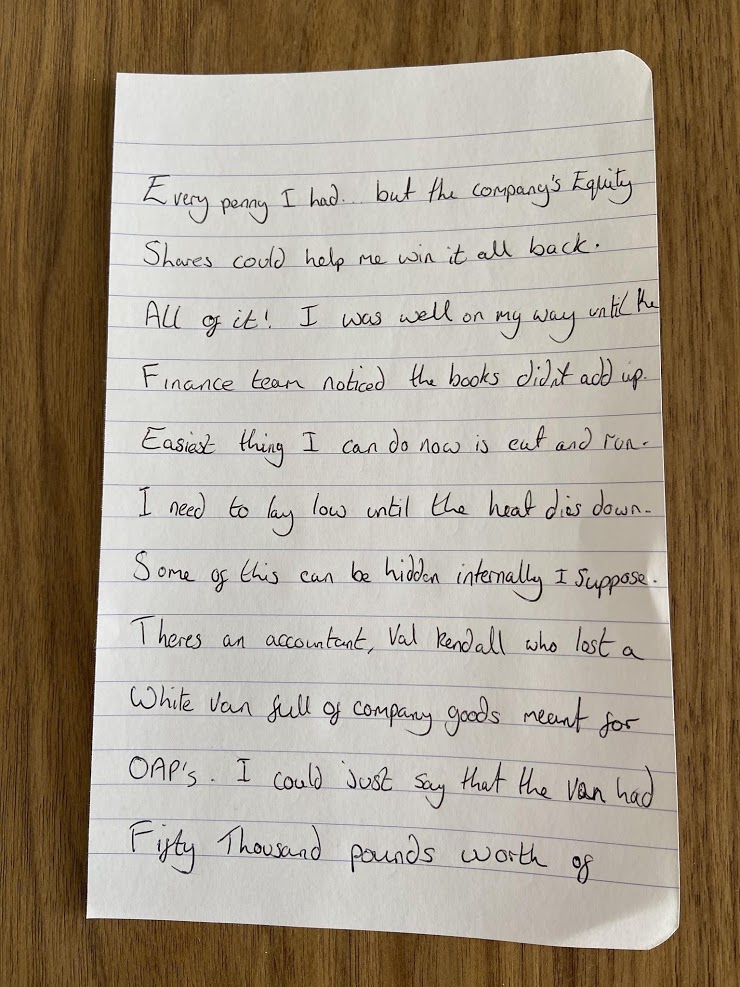 Every penny I had... but the company's Equity
Shares could help me win it all back.
All of it! I was well on my way until the
Finance team noticed the books didn't add up.
Easiest thing I can do now is cut and run.
I need to lay low until the heat dies down.
Some of this can be hidden internally I suppose.
Theres an accountant, Val Kendall who lost a
White van full of company goods meant for
OAP's. I could just say that the van had
Fifty Thousand pounds worth of